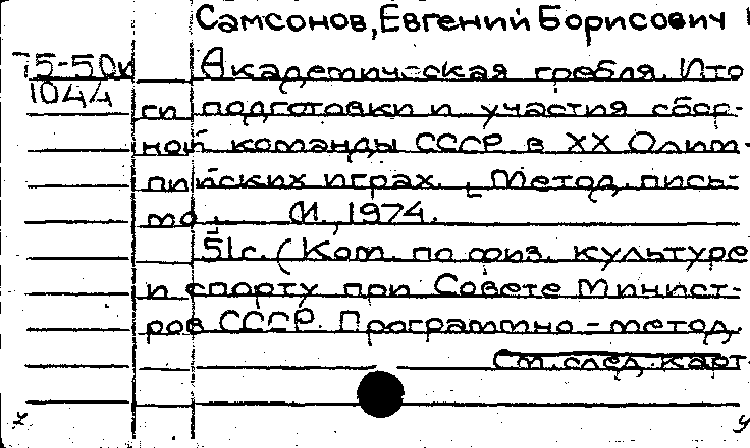 Самсонов, Евгений Борисович
75-50к Академическая гребля. Ито
1044 ги подготовки и участия сбор-
ной команды СССР в XX Олим-
пийских играх. [Метод. пись-
мо]. М., 1974.
51с. (Ком. по физ. культуре
и спорту при Совете Минист-
ров СССР. Программно-метод.
См. след. карт.
х у